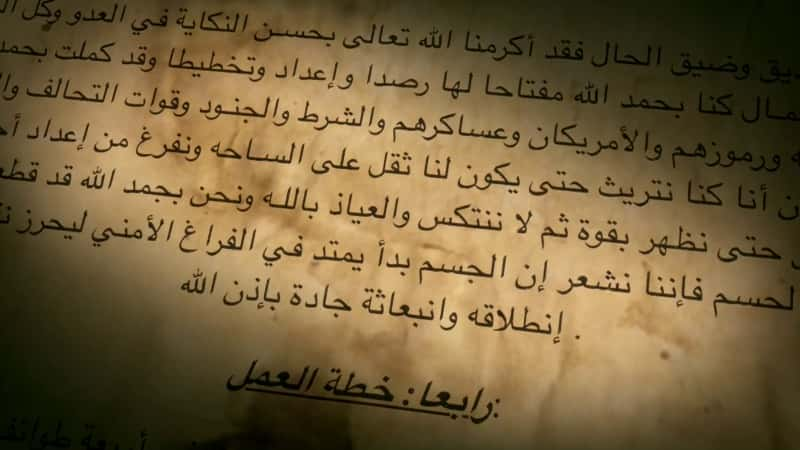 وضيق الحال فقد أكرمنا الله تعالى بحسن النكاية في العدو وكل
كنا بحمد الله مفتاحا لها رصدا وإعداد وتخطيطا وقد كملت بحمد
ورموزهم والأمريكان وعساكرهم والشرط والجنود وقوات التحالف
أنا كنا نتريث حتى يكون لنا ثقل على الساحه ونفرغ من إعداد
حتى نظهر بقوة ثم لا ننتكس والعياذ بالله ونحن بجمد الله قد
لحسم فإننا نشعر إن الجسم بدأ يمتد في الفراغ الأمني ليحرز
إنطلاقه وانبعاثة جادة بإذن الله .
رابعا: خطة العمل: